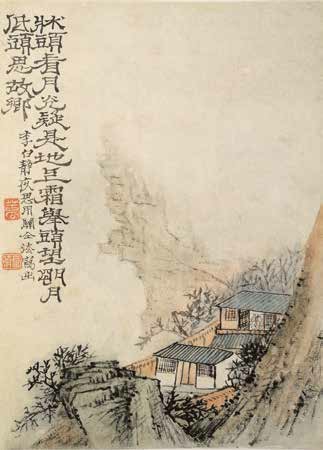 牀頭看月炗疑是地上霜舉頭望朙月
低頭思故鄉
李白靜夜思用關仝法寫之